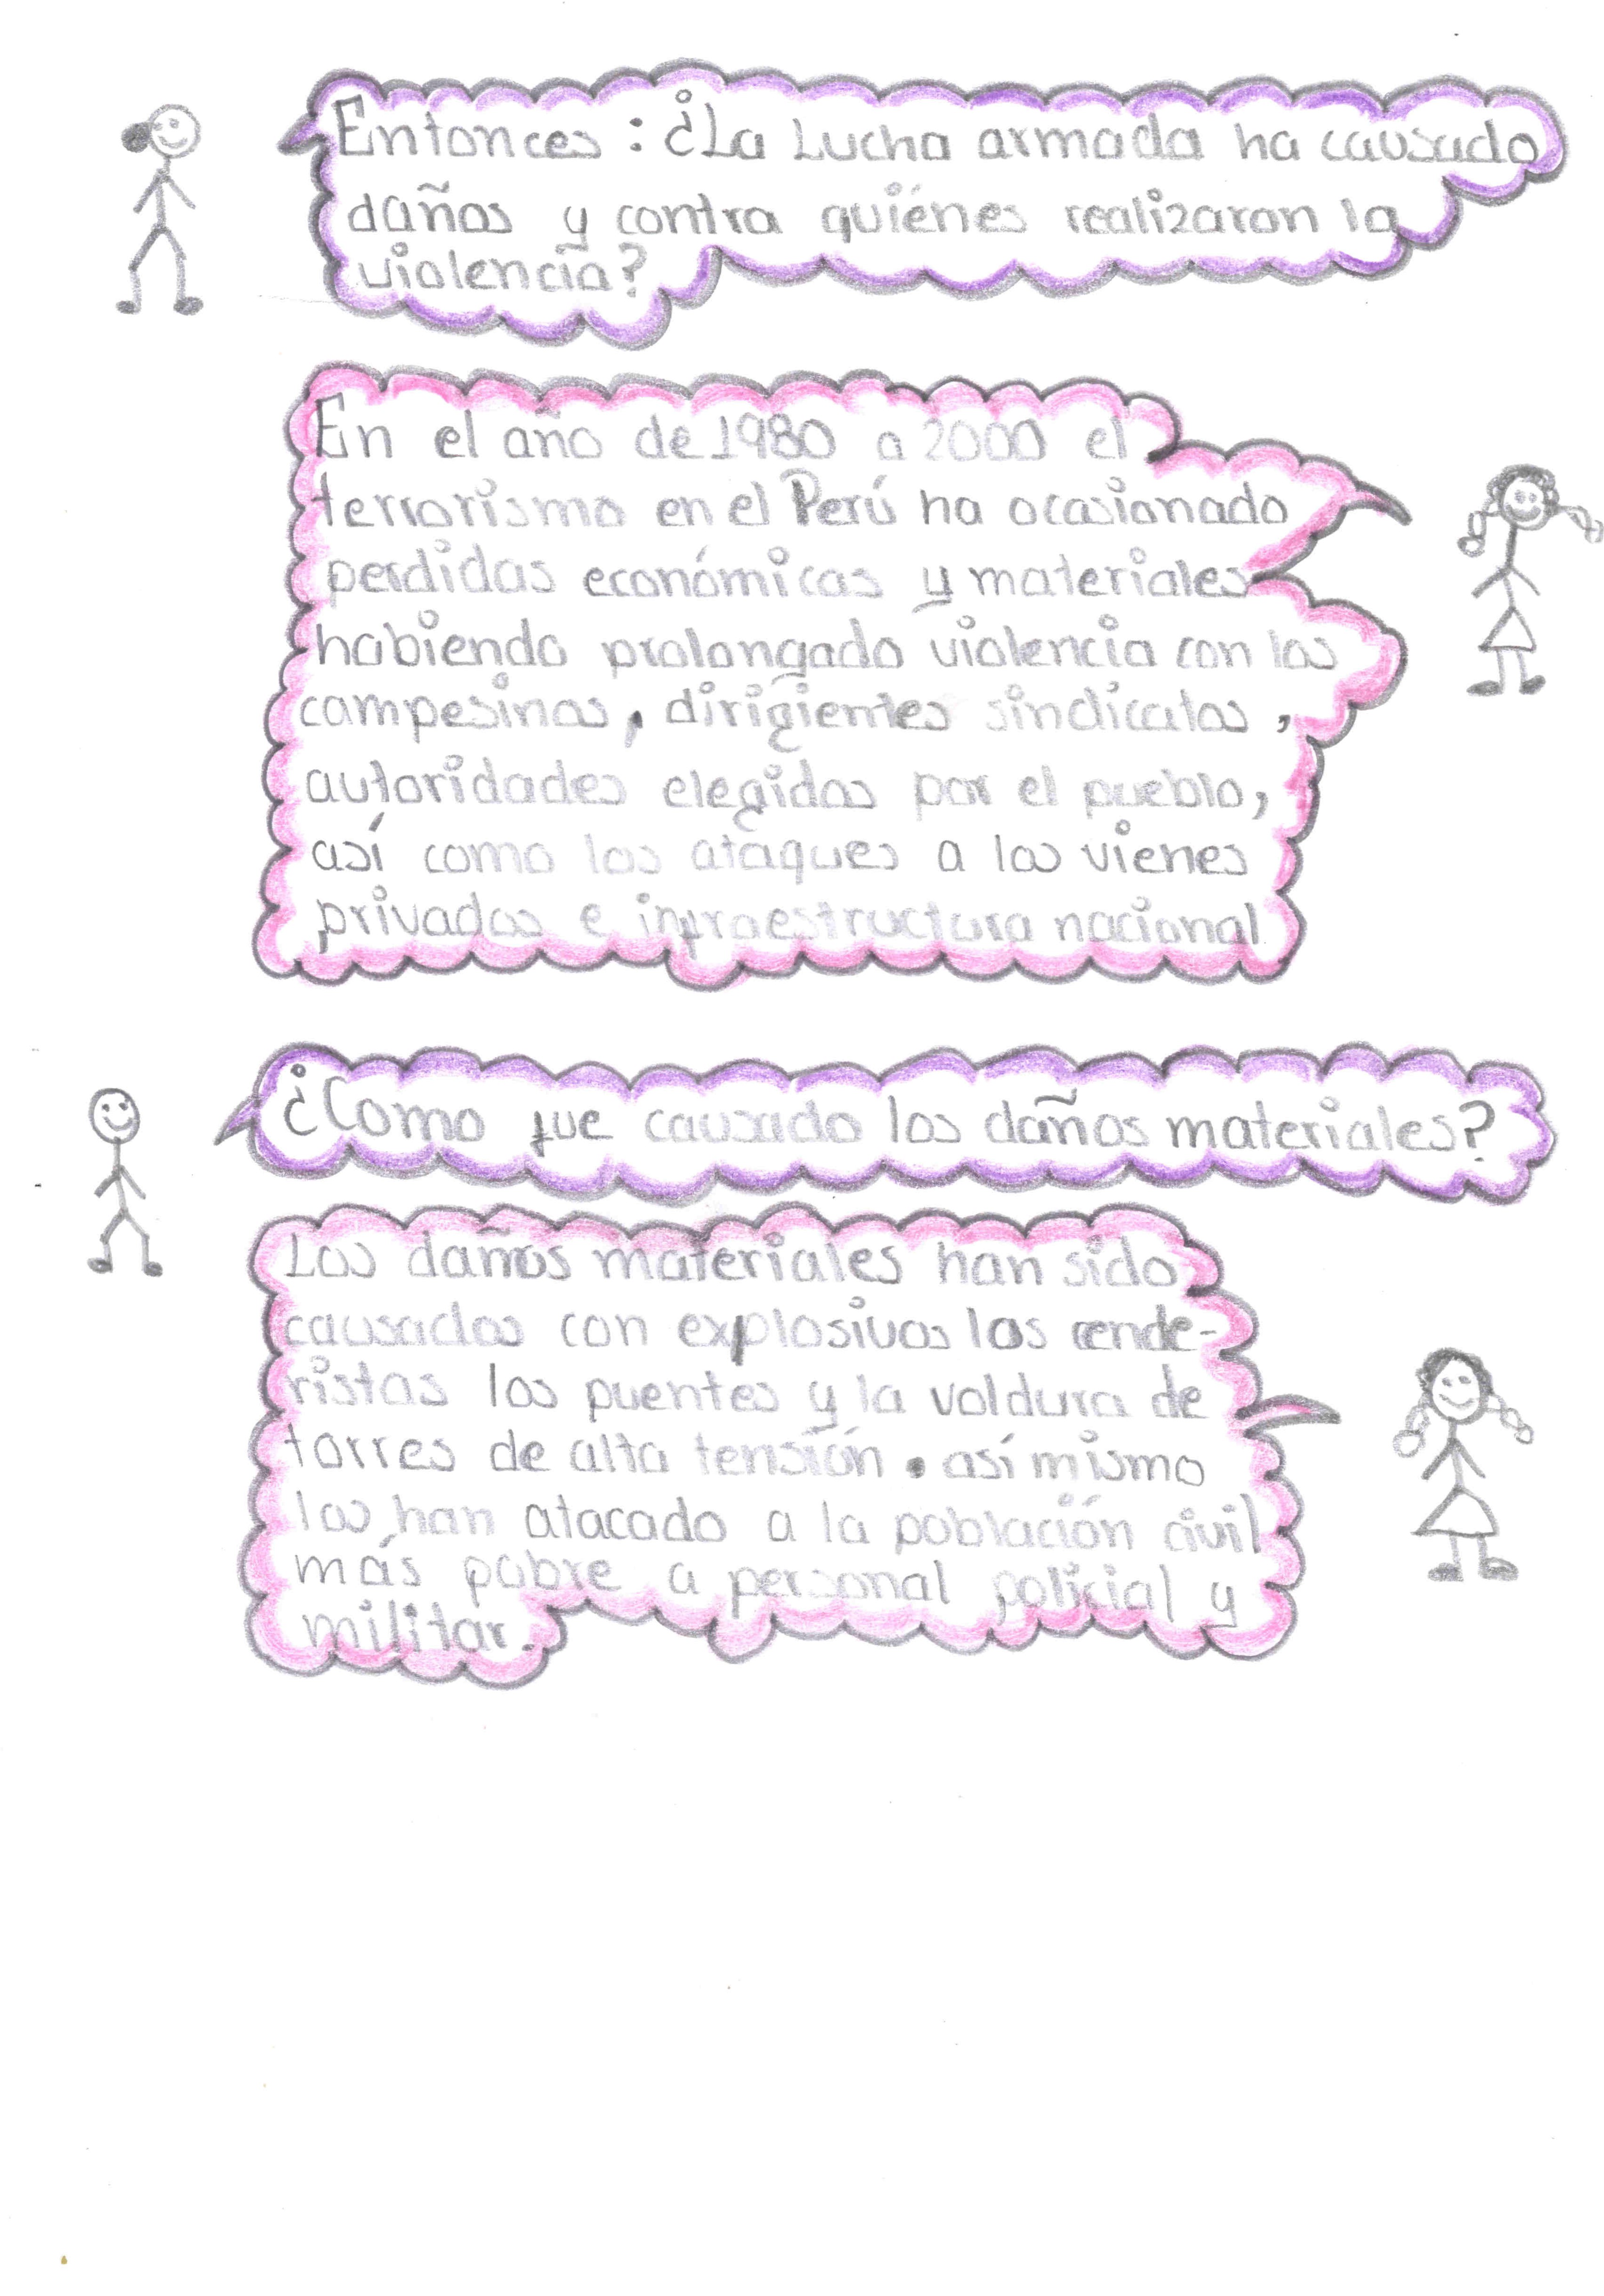 Entonces : ¿La Lucha armada ha causado
daños y contra quiénes realizaron la
violencia?
En el año de 1980 a 2000 el
terrorismo en el Perú ha ocasionado
perdidas económicas y materiales
habiendo prolongado violencia con los
campesinos, dirigientes sindicatos,
autoridades elegidos por el pueblo,
así como los ataques a los vienes
privados e infraestructura nacional
¿Como fue causado los daños materiales?
Los daños materiales han sido
causados con explosivos los cende-
ristas los puentes y la voldura de
torres de alta tensión. así mismo
los han atacado a la población civil
más pobre a personal policial y
militar.